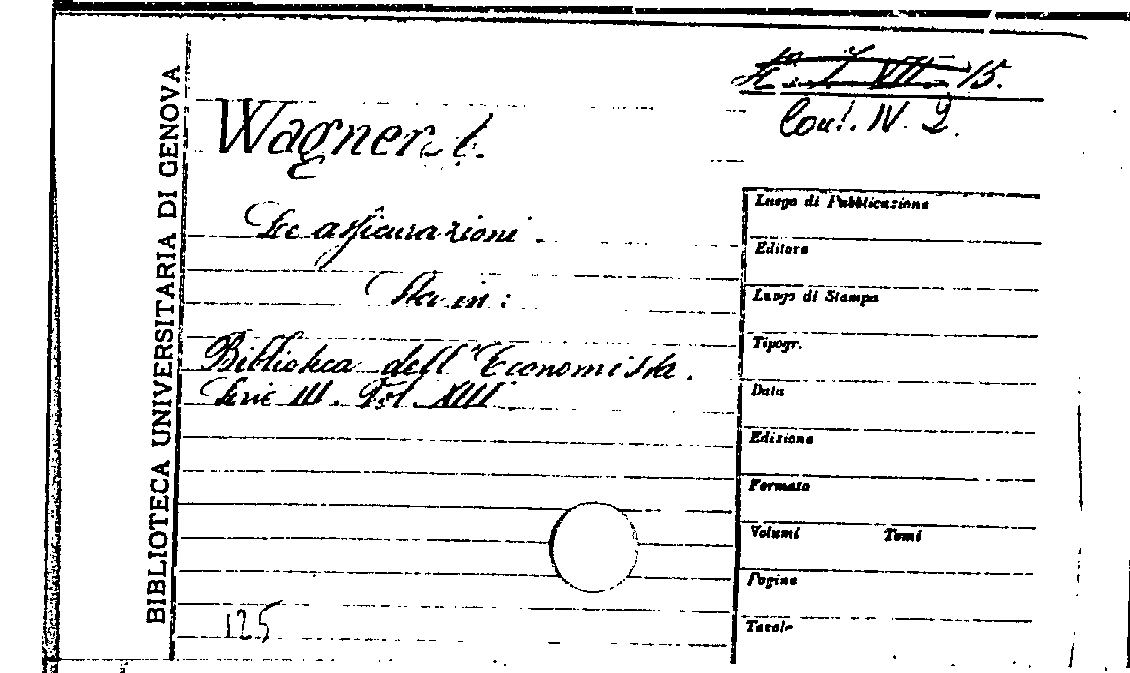 BIBLIOTECA UNIVERSITARIA DI GENOVA
VII 15.
Conf. IV. 2.
Wagner
Le assicurazioni.
Sta in:
Biblioteca dell'Economista.
Serie III. Vol. XIII
125
Luogo di Pubblicazione
Editore
Luogo di Stampa
Tipogr.
Data
Edizione
Formato
Volumi Tomi
Pagine
Tavole